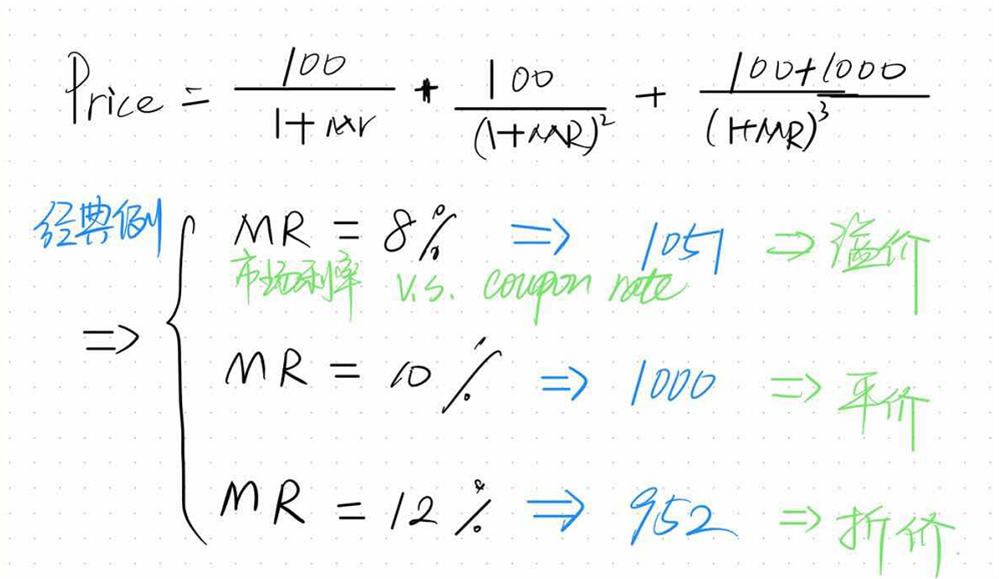 Price = 100/(1+Mr) + 100/(1+MR)² + (100+1000)/(1+MR)³
经典例 MR = 8% ⇒ 1051 ⇒ 溢价
市场利率 v.s. coupon rate
⇒ MR = 10% ⇒ 1000 ⇒ 平价
MR = 12% ⇒ 952 ⇒ 折价